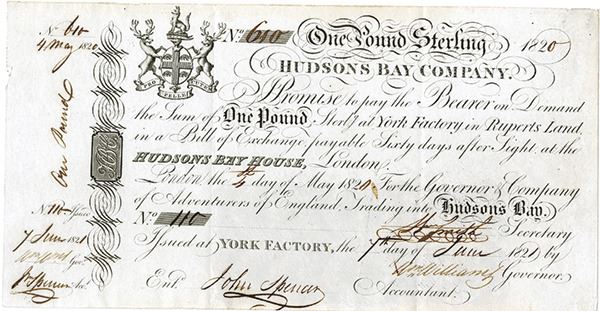 No. 610
4 May 1820
One Pound
HBC
No. 110 Issue
7 June 1821
Gov.
J. Spencer
PRO PELLE CUTEM
No. 610 One Pound Sterling 1820
HUDSONS BAY COMPANY.
I Promise to pay the Bearer on Demand
the Sum of One Pound Sterlg. at York Factory in Ruperts Land,
in a Bill of Exchange, payable Sixty days after Sight, at the
HUDSONS BAY HOUSE, London.
London, the 4th day of May 1820, For the Governor & Company
of Adventurers of England, Trading into Hudsons Bay.
No. 110 Secretary
Issued at YORK FACTORY, the 7th day of June 1821 by
Wm Williams Governor.
Entd. John Spencer Accountant.